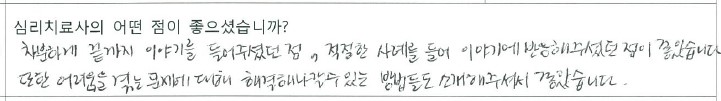 심리치료사의 어떤 점이 좋으셨습니까?
차분하게 끝까지 이야기를 들어주셨던 점, 적절한 사례를 들어 이야기에 반응해주셨던 점이 좋았습니다
또한 어려움을 겪는 문제에 대해 해결해나갈수 있는 방법들도 소개해주셔서 좋았습니다.